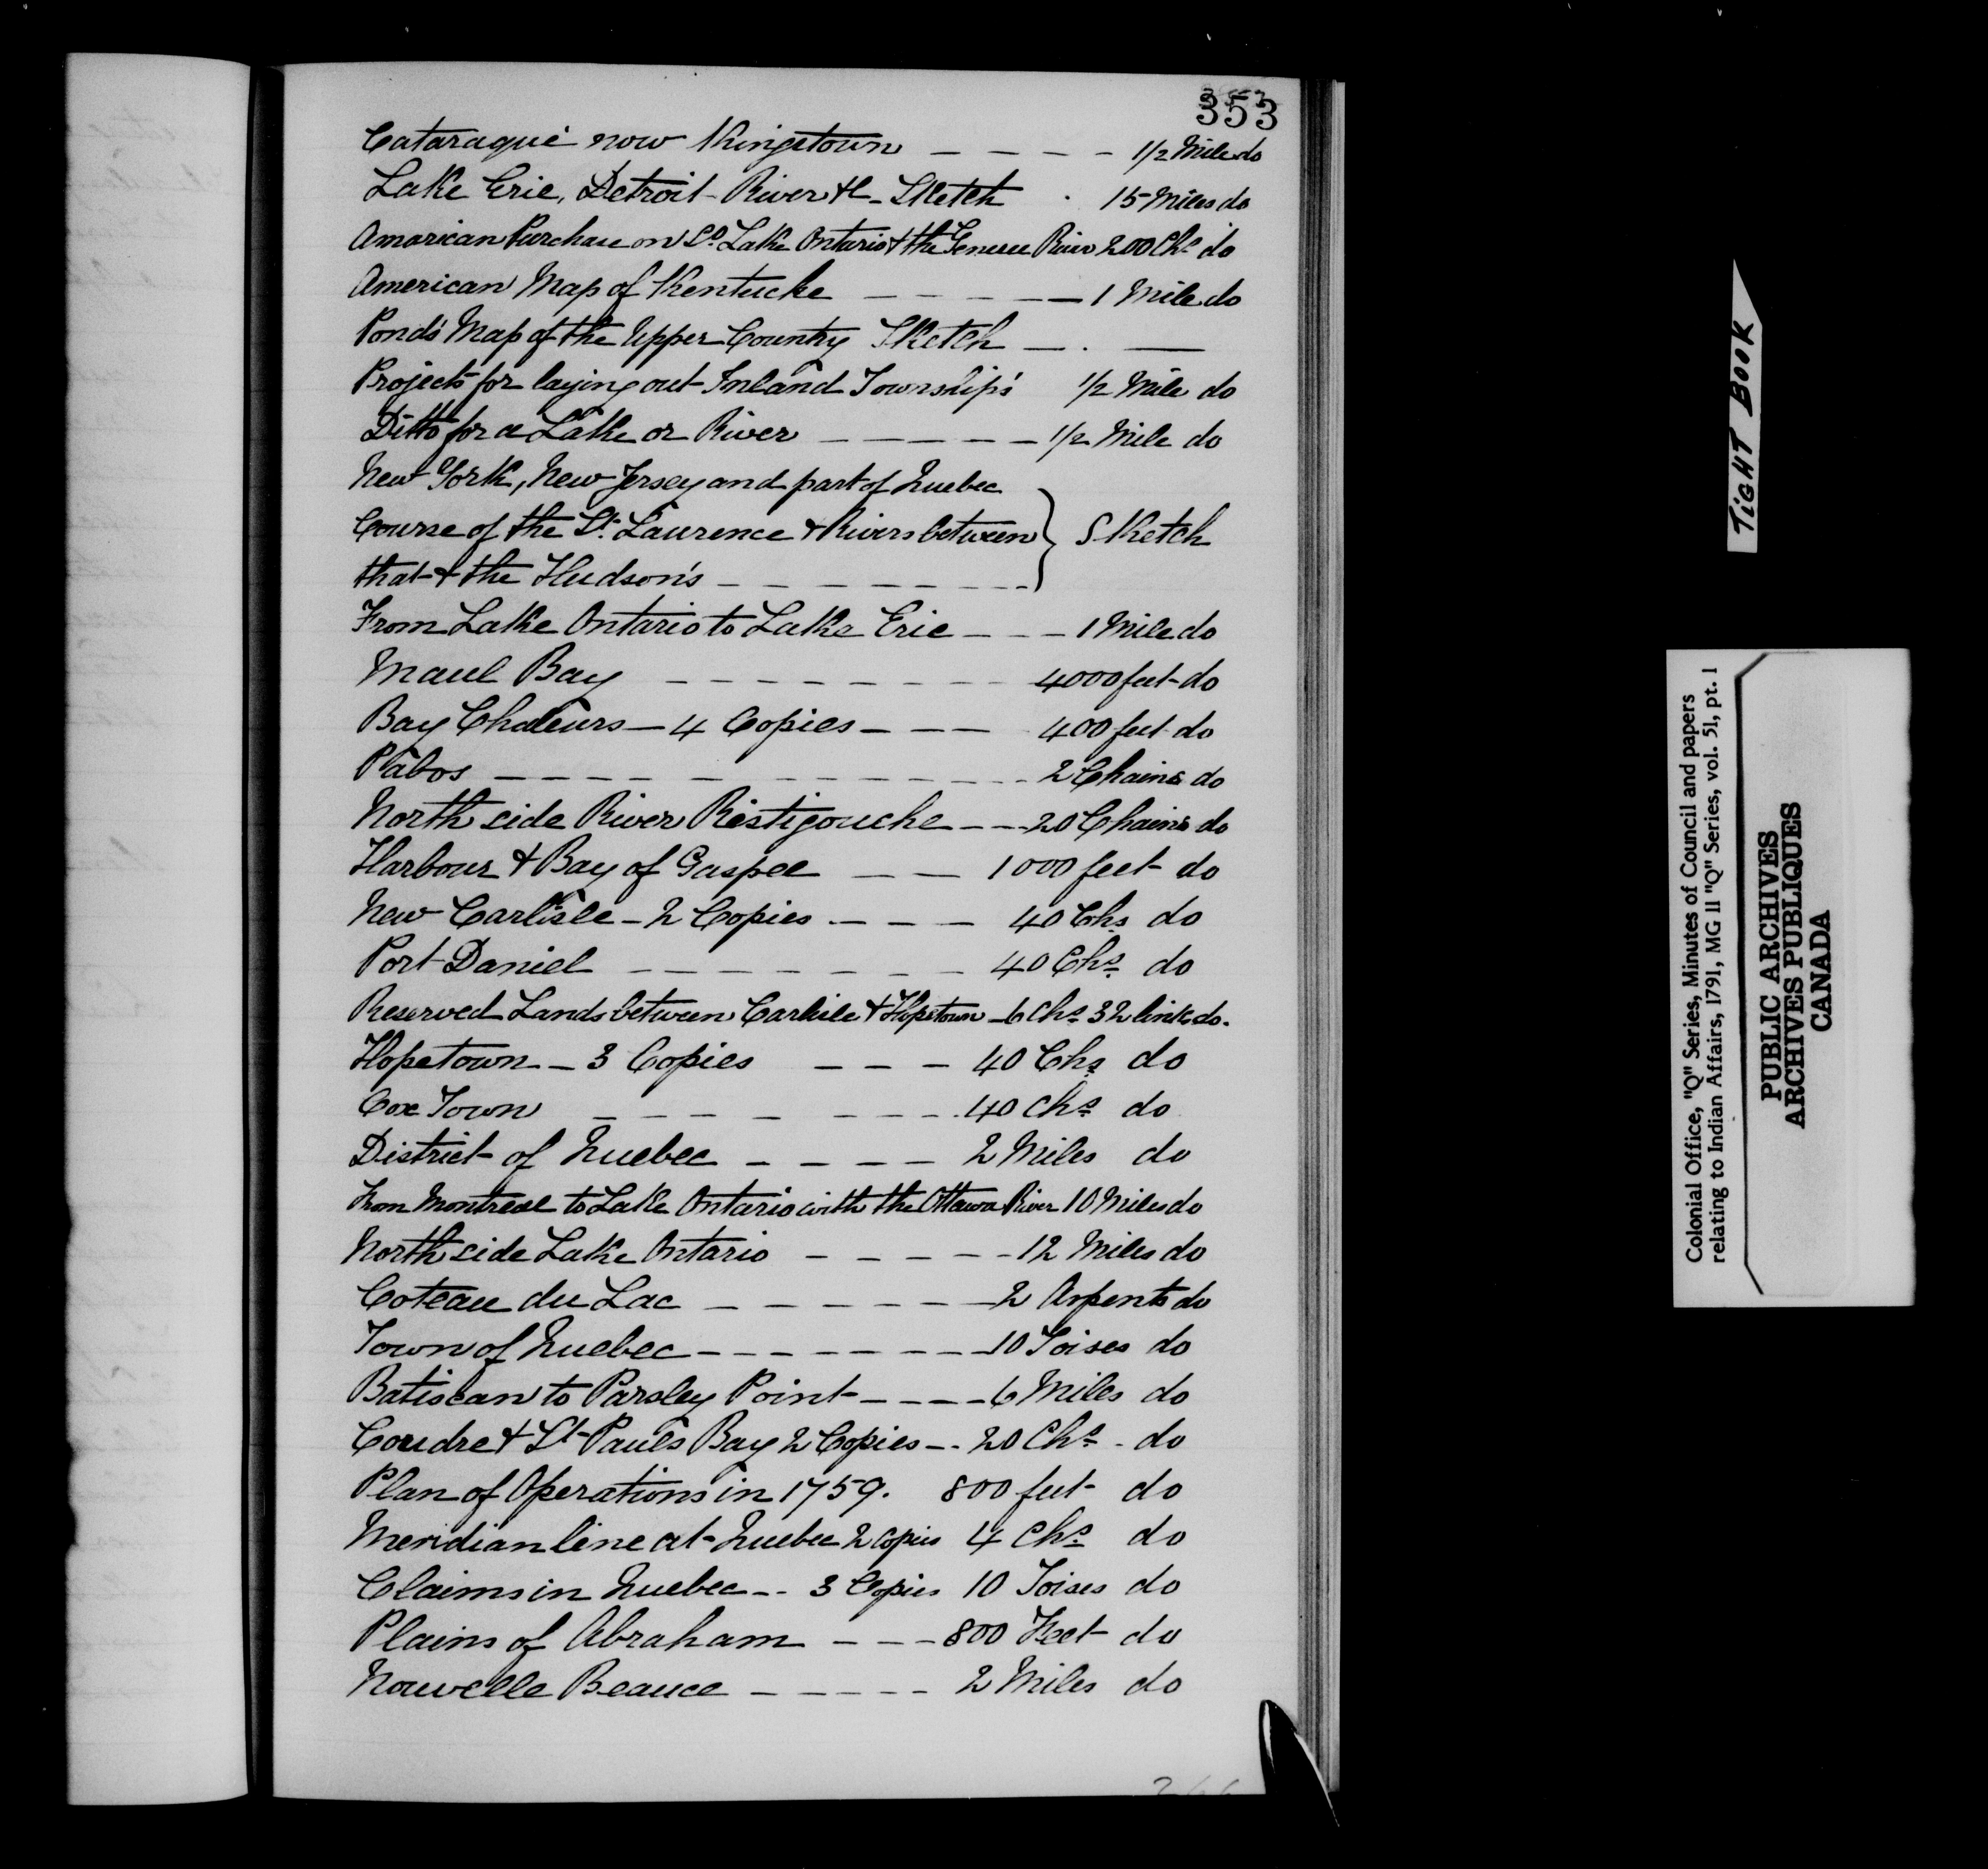 353
Cataraqué now Kingstown – – – – 1/2 Mile do
Lake Erie, Detroit River &c – Sketch . 15 Miles do
Amarican Purchase on Lake Ontario & the Genesee River 200 Chs do
American Map of Kentucke – – – – – 1 Mile do
Pond's Map of the Upper Country Sketch – . –
Projects for laying out Inland Township's 1/2 Mile do
Ditto for a Lake or River – – – – – 1/2 Mile do
New York, New Jersey and part of Quebec
Course of the St. Laurence & Rivers between } Sketch
that & the Hudson's – – – – – – –
From Lake Ontario to Lake Erie – – – 1 Mile do
Maul Bay – – – – – – – – 4000 feet do
Bay Chaleurs – 4 Copies – – – 400 feet do
Pabos – – – – – – – – – – – 2 Chains do
North side River Ristigouche – – – 20 Chains do
Harbour & Bay of Gaspee – – – 1000 feet do
New Carlisle – 2 Copies – – – 40 Chs do
Port Daniel – – – – – – – 40 Chs do
Reserved Lands between Carlisle & Hopetown – 6 Chs 32 links do.
Hopetown – 3 Copies – – – 40 Chs do
Cox Town – – – – – – – 40 Chs do
District of Quebec – – – – 2 Miles do
From Montreal to Lake Ontario with the Ottawa River 10 Miles do
North side Lake Ontario – – – – – 12 Miles do
Coteau du Lac – – – – – – 2 Arpents do
Town of Quebec – – – – – – – 10 Toises do
Batiscan to Parsley Point – – – – 6 Miles do
Coudre & St Paul's Bay 2 Copies – . 20 Chs . do
Plan of Operations in 1759. 800 feet do
Meridian line at Quebec 2 Copies 4 Chs do
Claims in Quebec – – 3 Copies 10 Toises do
Plains of Abraham – – – 800 Feet do
Nouvelle Beauce – – – – – 2 Miles do
TIGHT BOOK
Colonial Office, "Q" Series, Minutes of Council and papers
relating to Indian Affairs, 1791, MG 11 "Q" Series, vol. 51, pt. 1
PUBLIC ARCHIVES
ARCHIVES PUBLIQUES
CANADA